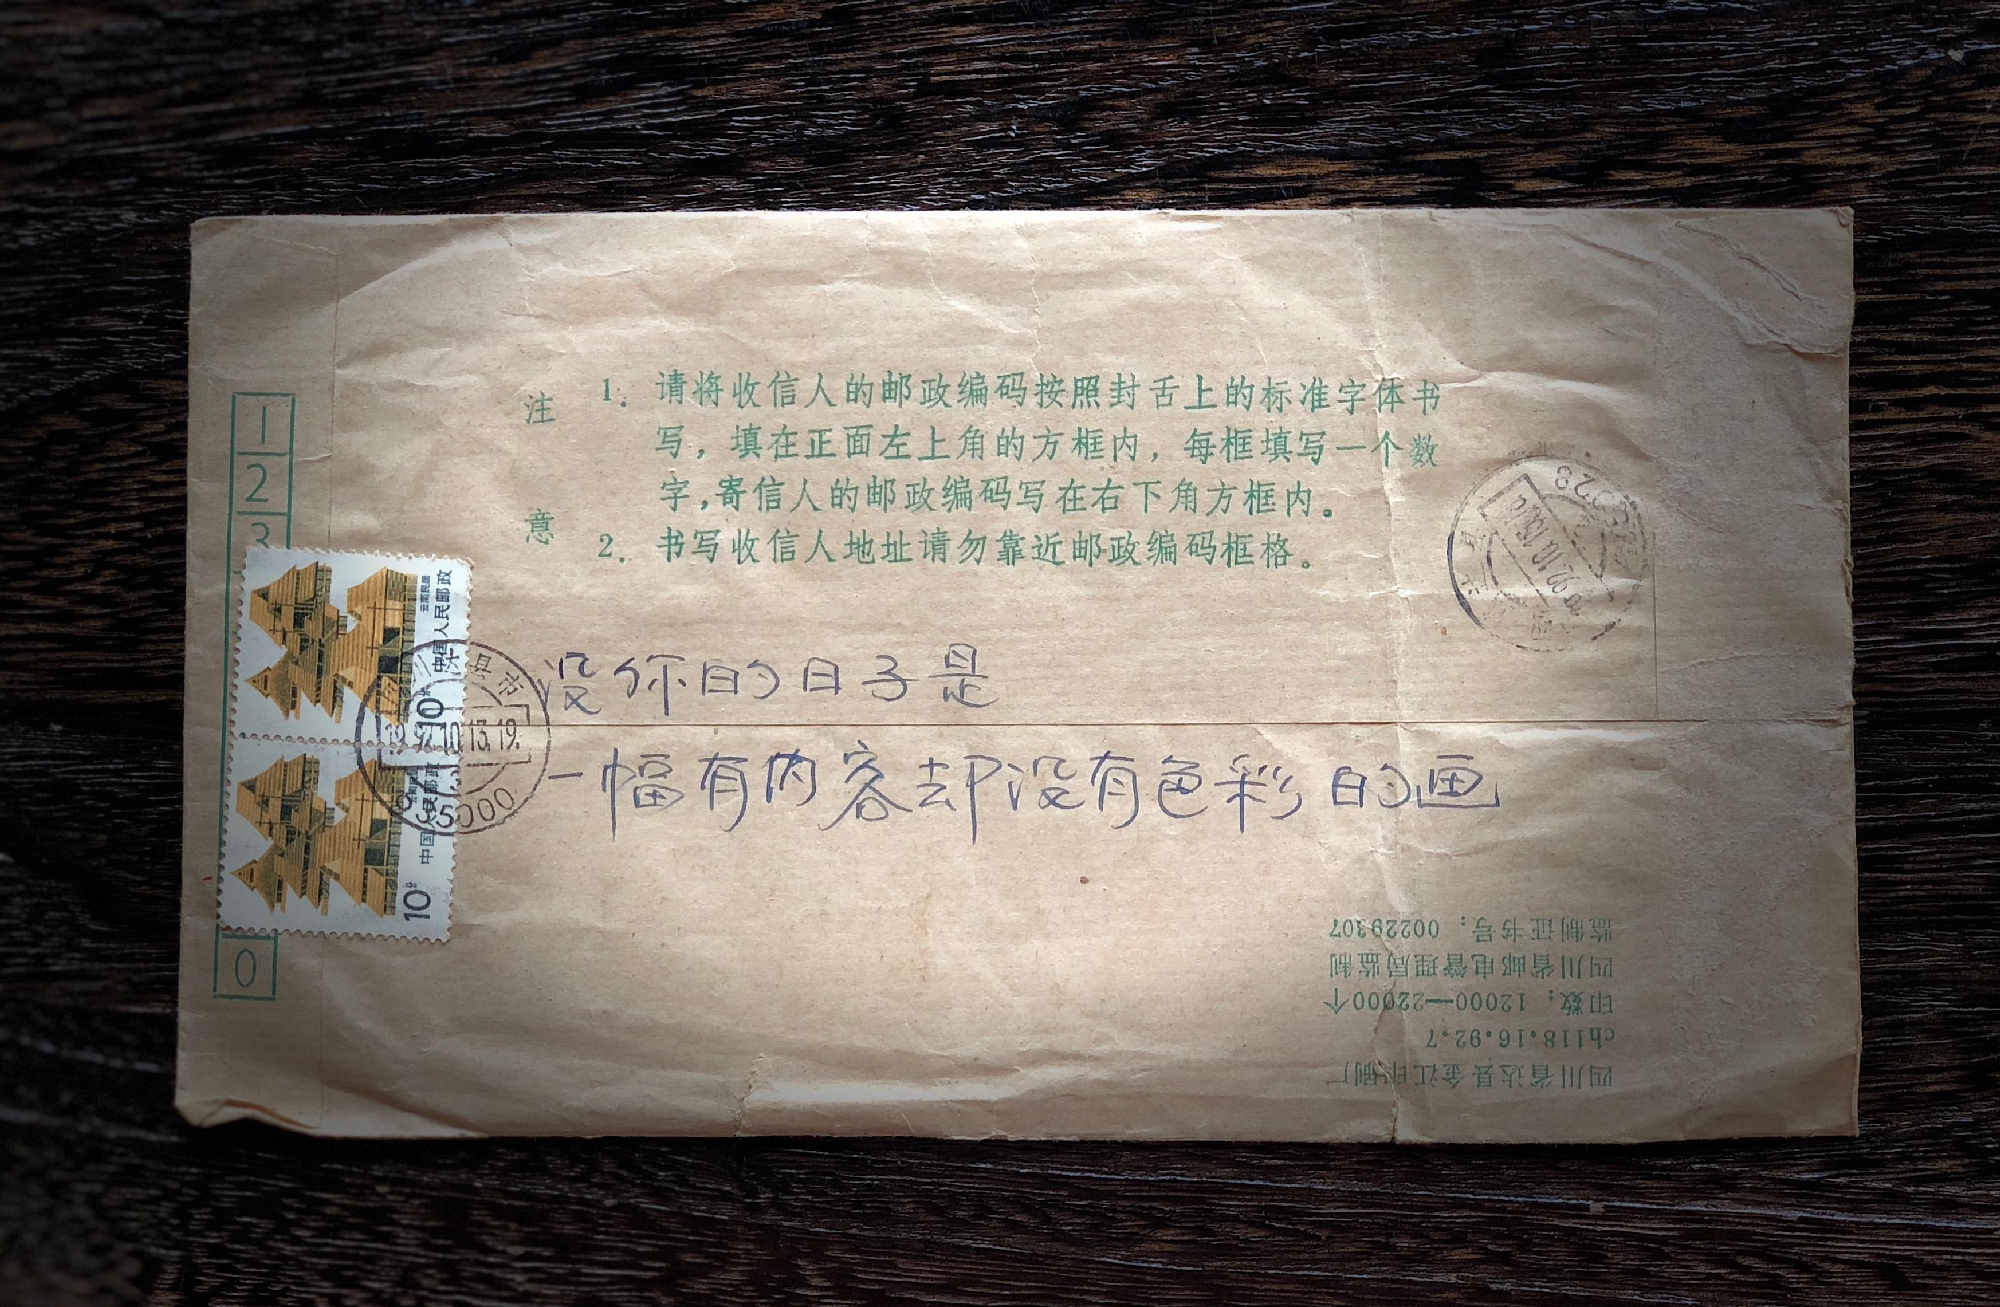 注意
1. 请将收信人的邮政编码按照封舌上的标准字体书
写，填在正面左上角的方框内，每框填写一个数
字，寄信人的邮政编码写在右下角方框内。
2. 书写收信人地址请勿靠近邮政编码框格。
1
2
3
0
中国人民邮政
云南民居
10分
中国人民邮政
10分
县市
10.13.19.
5000
没你的日子是
一幅有内容却没有色彩的画
四川省达县金江印刷厂
ch118.16.92.7
印数：12000—22000个
四川省邮电管理局监制
监制证书号：00229307